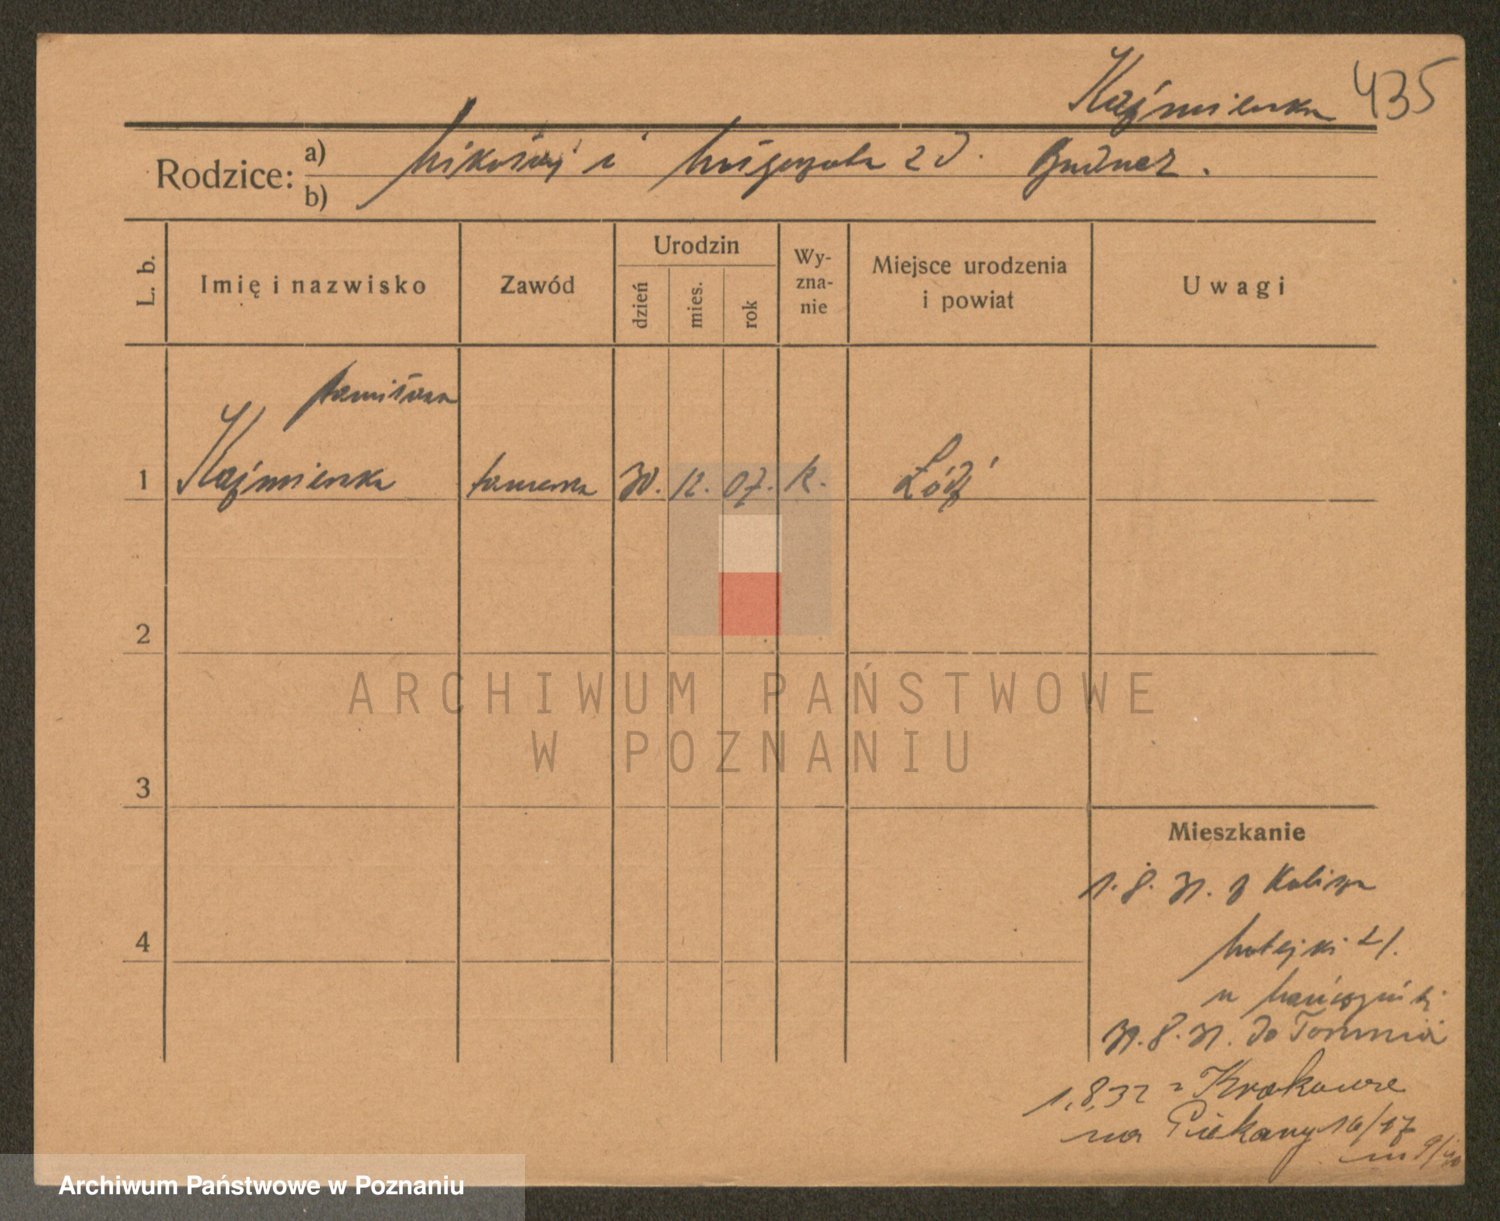 Kaźmierska 435
Rodzice: a) Mikołaj i Małgorzata z d.
b)
L. b.
Imię i nazwisko
Zawód
Urodzin
dzień
mies.
rok
Wy-
zna-
nie
Miejsce urodzenia
i powiat
Uwagi
Stanisława
1 Kaźmierska 30. 12. 07. k. Łódź
2
3
4
Mieszkanie
1. 8. 31. z Kalisza
Matejki 21.
u
31. 8. 31. do Torunia
1.8.32 z Krakowa
na Piekary 16/17
ARCHIWUM PAŃSTWOWE
W POZNANIU
Archiwum Państwowe w Poznaniu